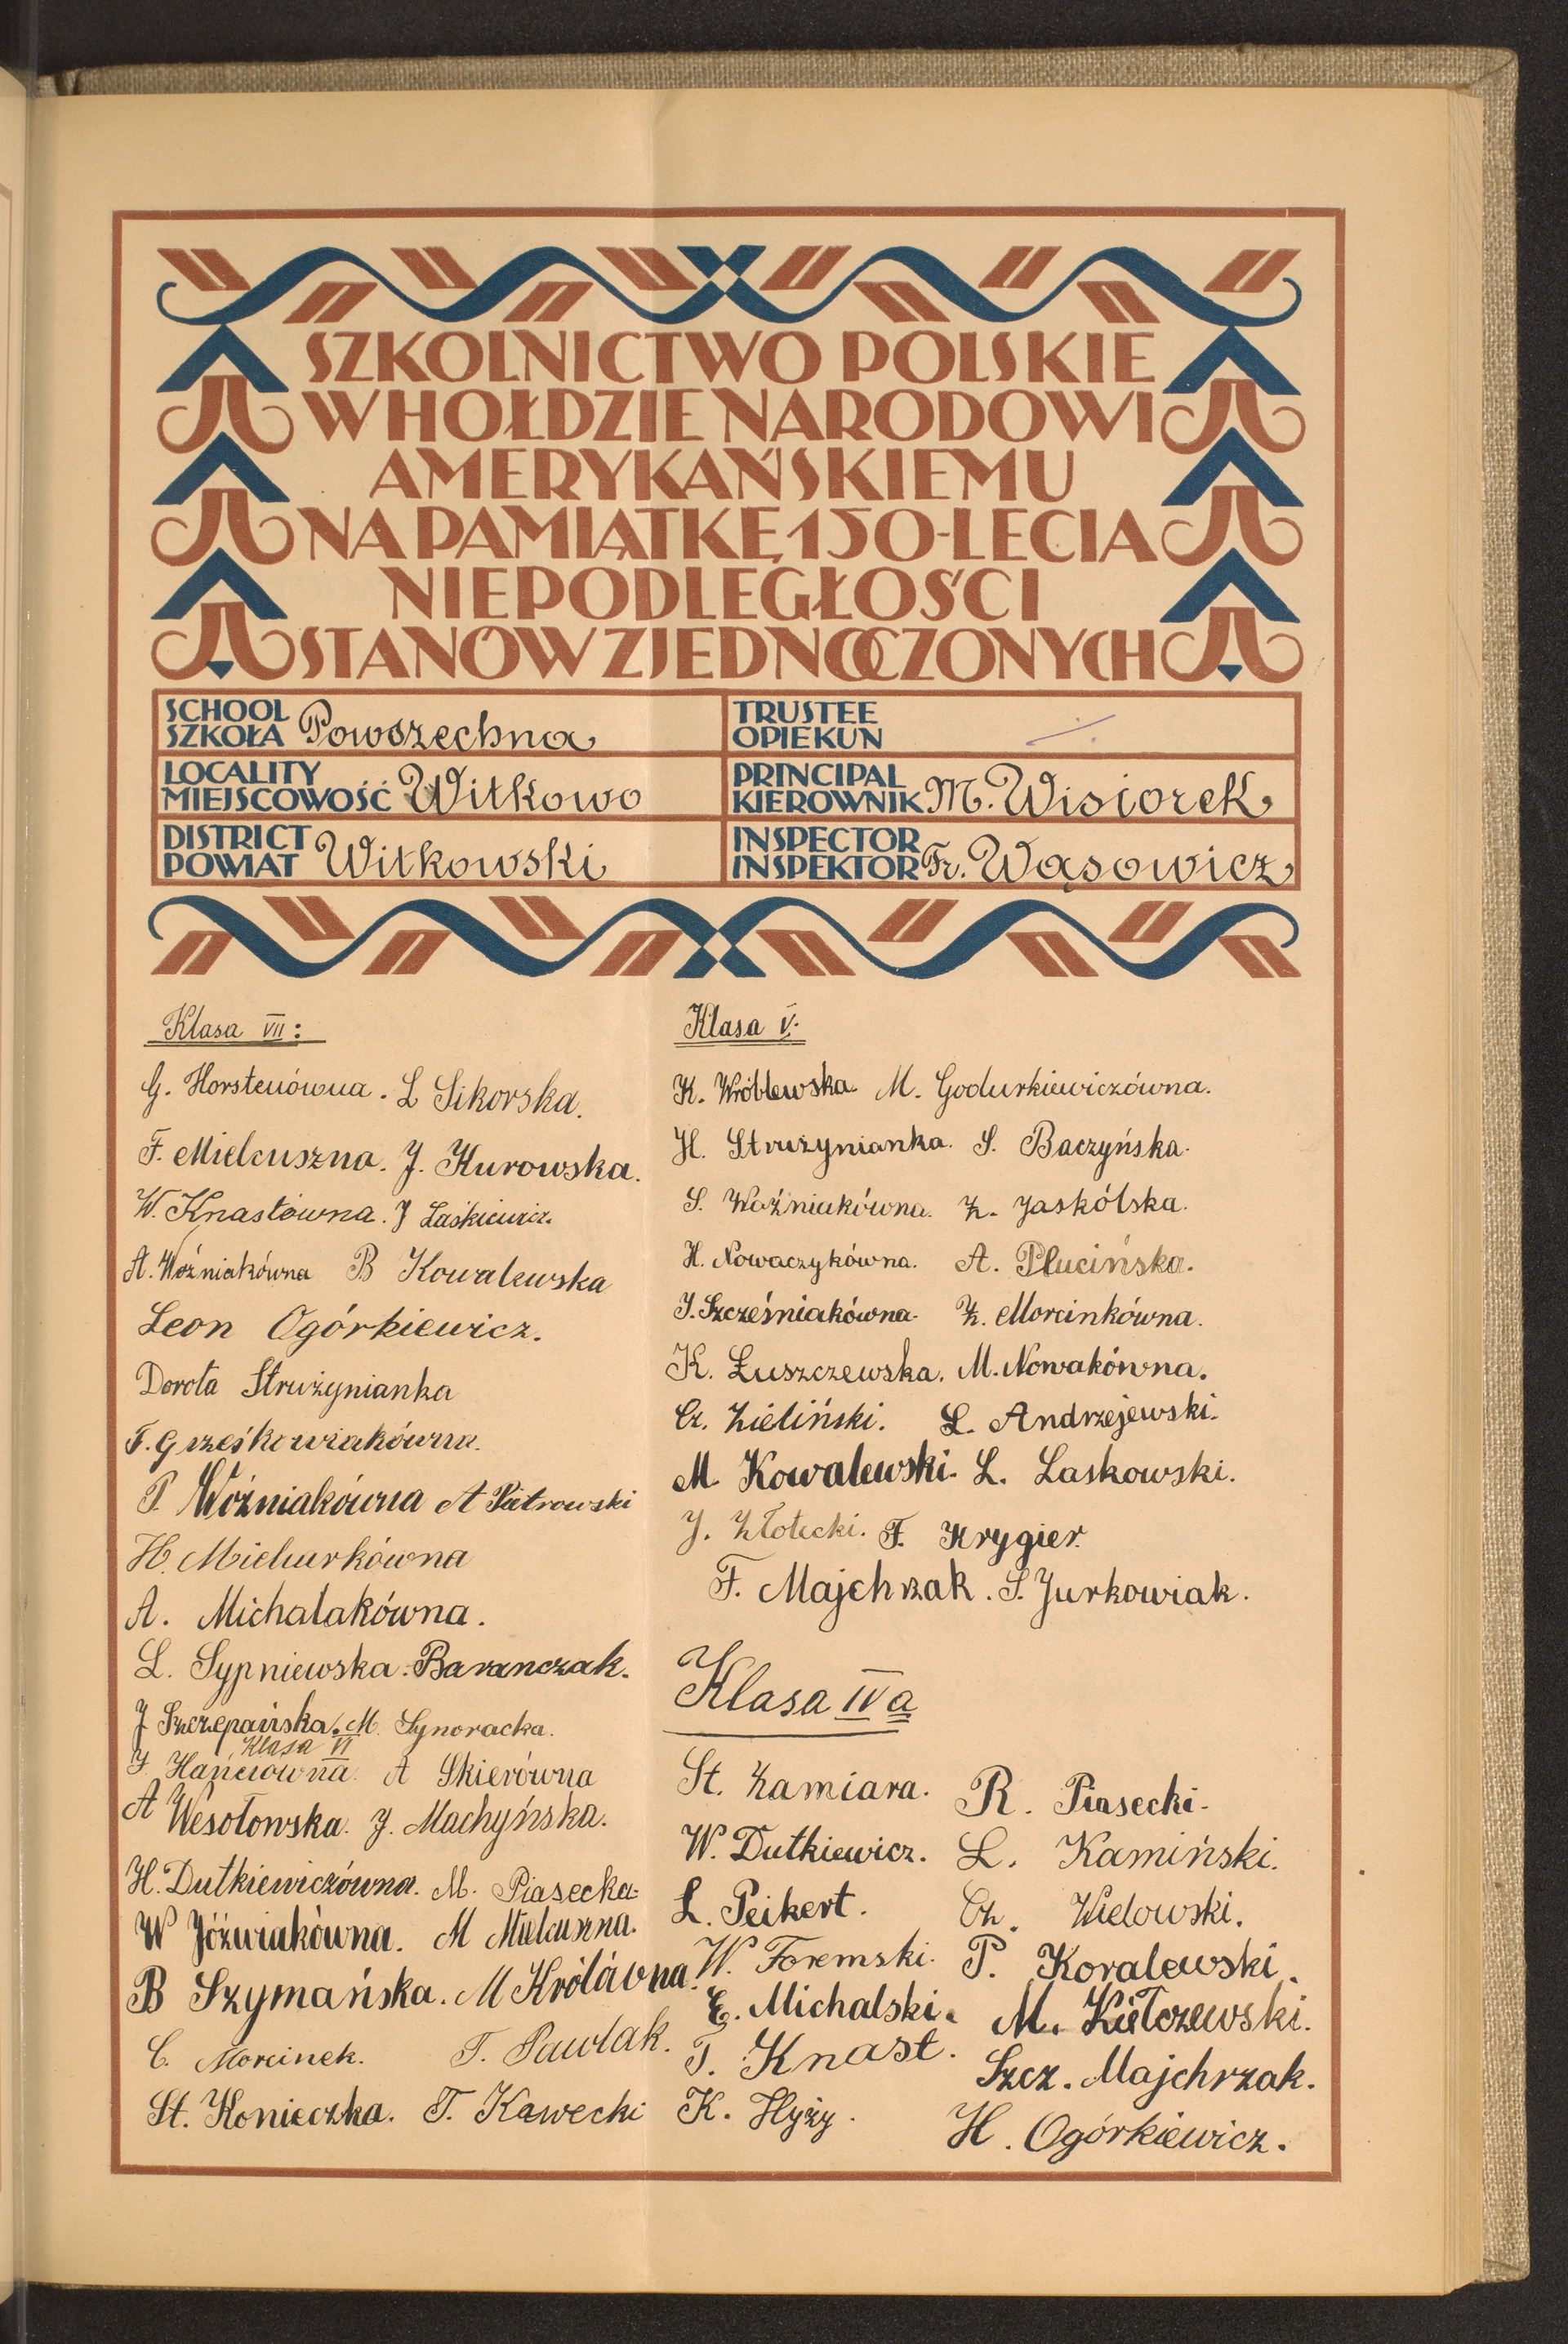 SZKOLNICTWO POLSKIE
W HOŁDZIE NARODOWI
AMERYKAŃSKIEMU
NA PAMIĄTKĘ 150-LECIA
NIEPODLEGŁOŚCI
STANÓW ZJEDNOCZONYCH
SCHOOL
SZKOŁA Powszechna
LOCALITY
MIEJSCOWOŚĆ Witkowo
DISTRICT
POWIAT Witkowski
TRUSTEE
OPIEKUN
PRINCIPAL
KIEROWNIK M. Wisiorek
INSPECTOR
INSPEKTOR Fr. Wąsowicz
Klasa VII:
G. Horstenówna. L Sikorska.
F. Mielcuszna. J. Kurowska.
W. Knastówna. J Laśkiewicz.
A. Woźniakówna B Kowalewska
Leon Ogórkiewicz.
Dorota Strużynianka
F. Grześkowiakówna.
P. Woźniakówna A Piotrowski
H. Miehurkówna
A. Michalakówna.
L. Sypniewska. Baranczak.
J Szczepańska. M. Synoracka.
Klasa VI
J. Hańciówna. A Skierówna
A Wesołowska. J. Machyńska.
H. Dutkiewiczówna. M. Piasecka.
W Jóźwiakówna. M Mielcuszna.
B Szymańska. M Królówna.
C. Morcinek. T. Pawlak.
St. Konieczka. T. Kawecki
Klasa V.
K. Wróblewska. M. Godurkiewiczówna.
H. Strużynianka. S. Baczyńska.
S. Woźniakówna. Z. Jaskólska.
H. Nowaczykówna. A. Plucińska.
J. Szcześniakówna. Z. Morcinkówna.
K. Łuszczewska. M. Nowakówna.
Cz. Zieliński. L. Andrzejewski.
M. Kowalewski. L. Laskowski.
J. Złotecki. F. Krygier.
F. Majchrzak. S. Jurkowiak.
Klasa IV a
St. Zamiara. R. Piasecki.
W. Dutkiewicz. L. Kamiński.
L. Peikert. Cz. Wielowski.
W. Foremski. P. Kovalewski.
E. Michalski. M. Kiełczewski.
T. Knast. Szcz. Majchrzak.
K. Hyży. H. Ogórkiewicz.